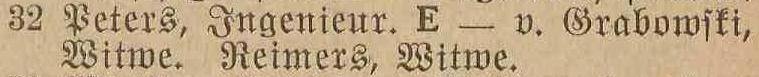 32 Peters, Ingenieur. E — v. Grabowſki,
Witwe. Reimers, Witwe.